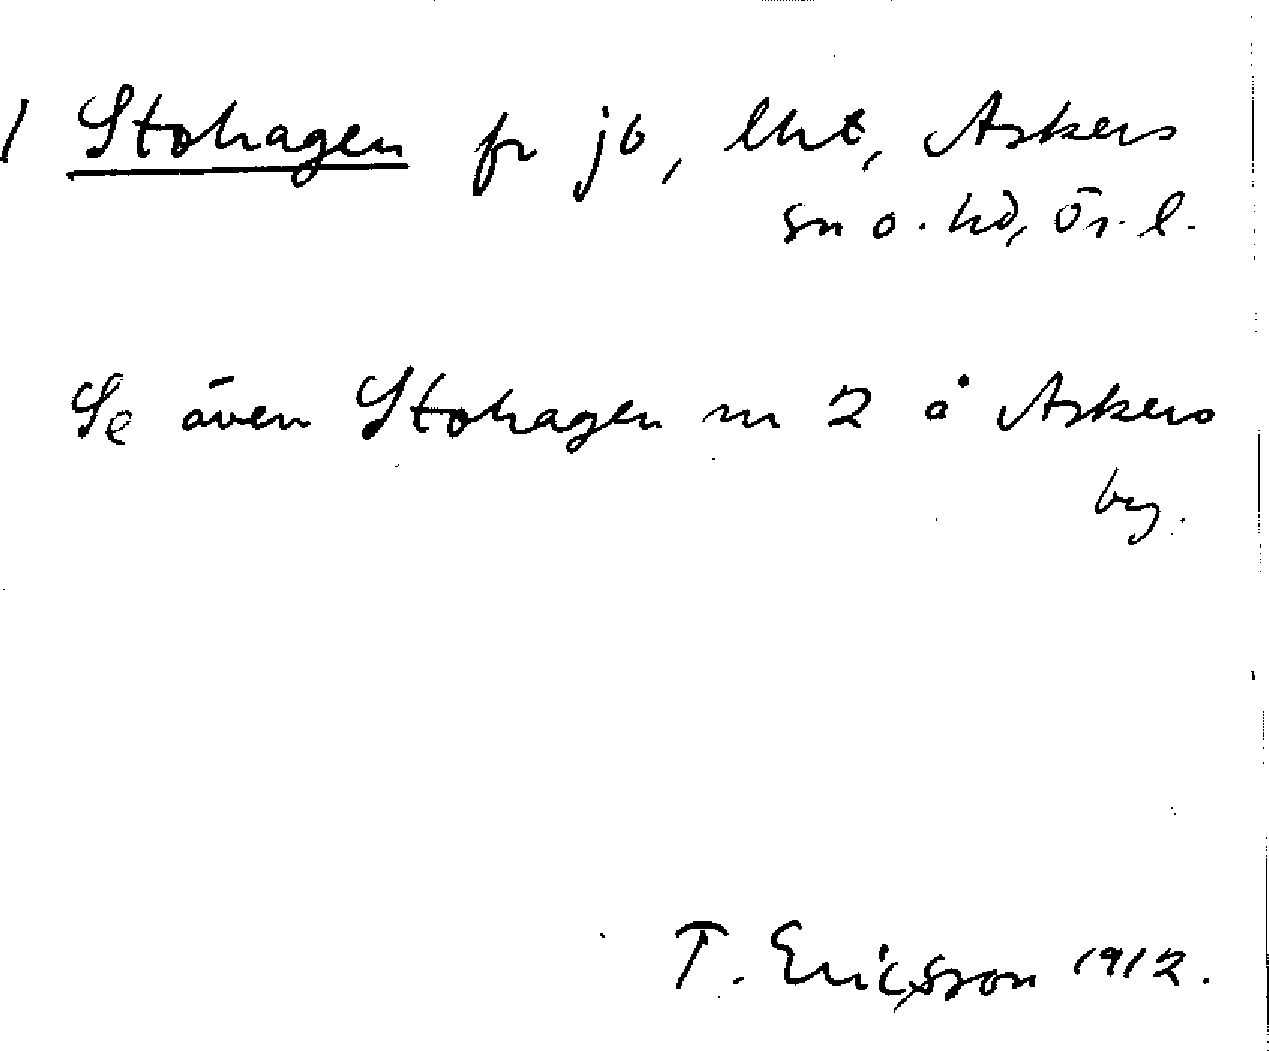 1 Stohagen fr jb, lht, Askers
sn o. hd, Ör. l.
Se även Stohagen nr 2 å Askers
by.
T. Ericsson 1912.